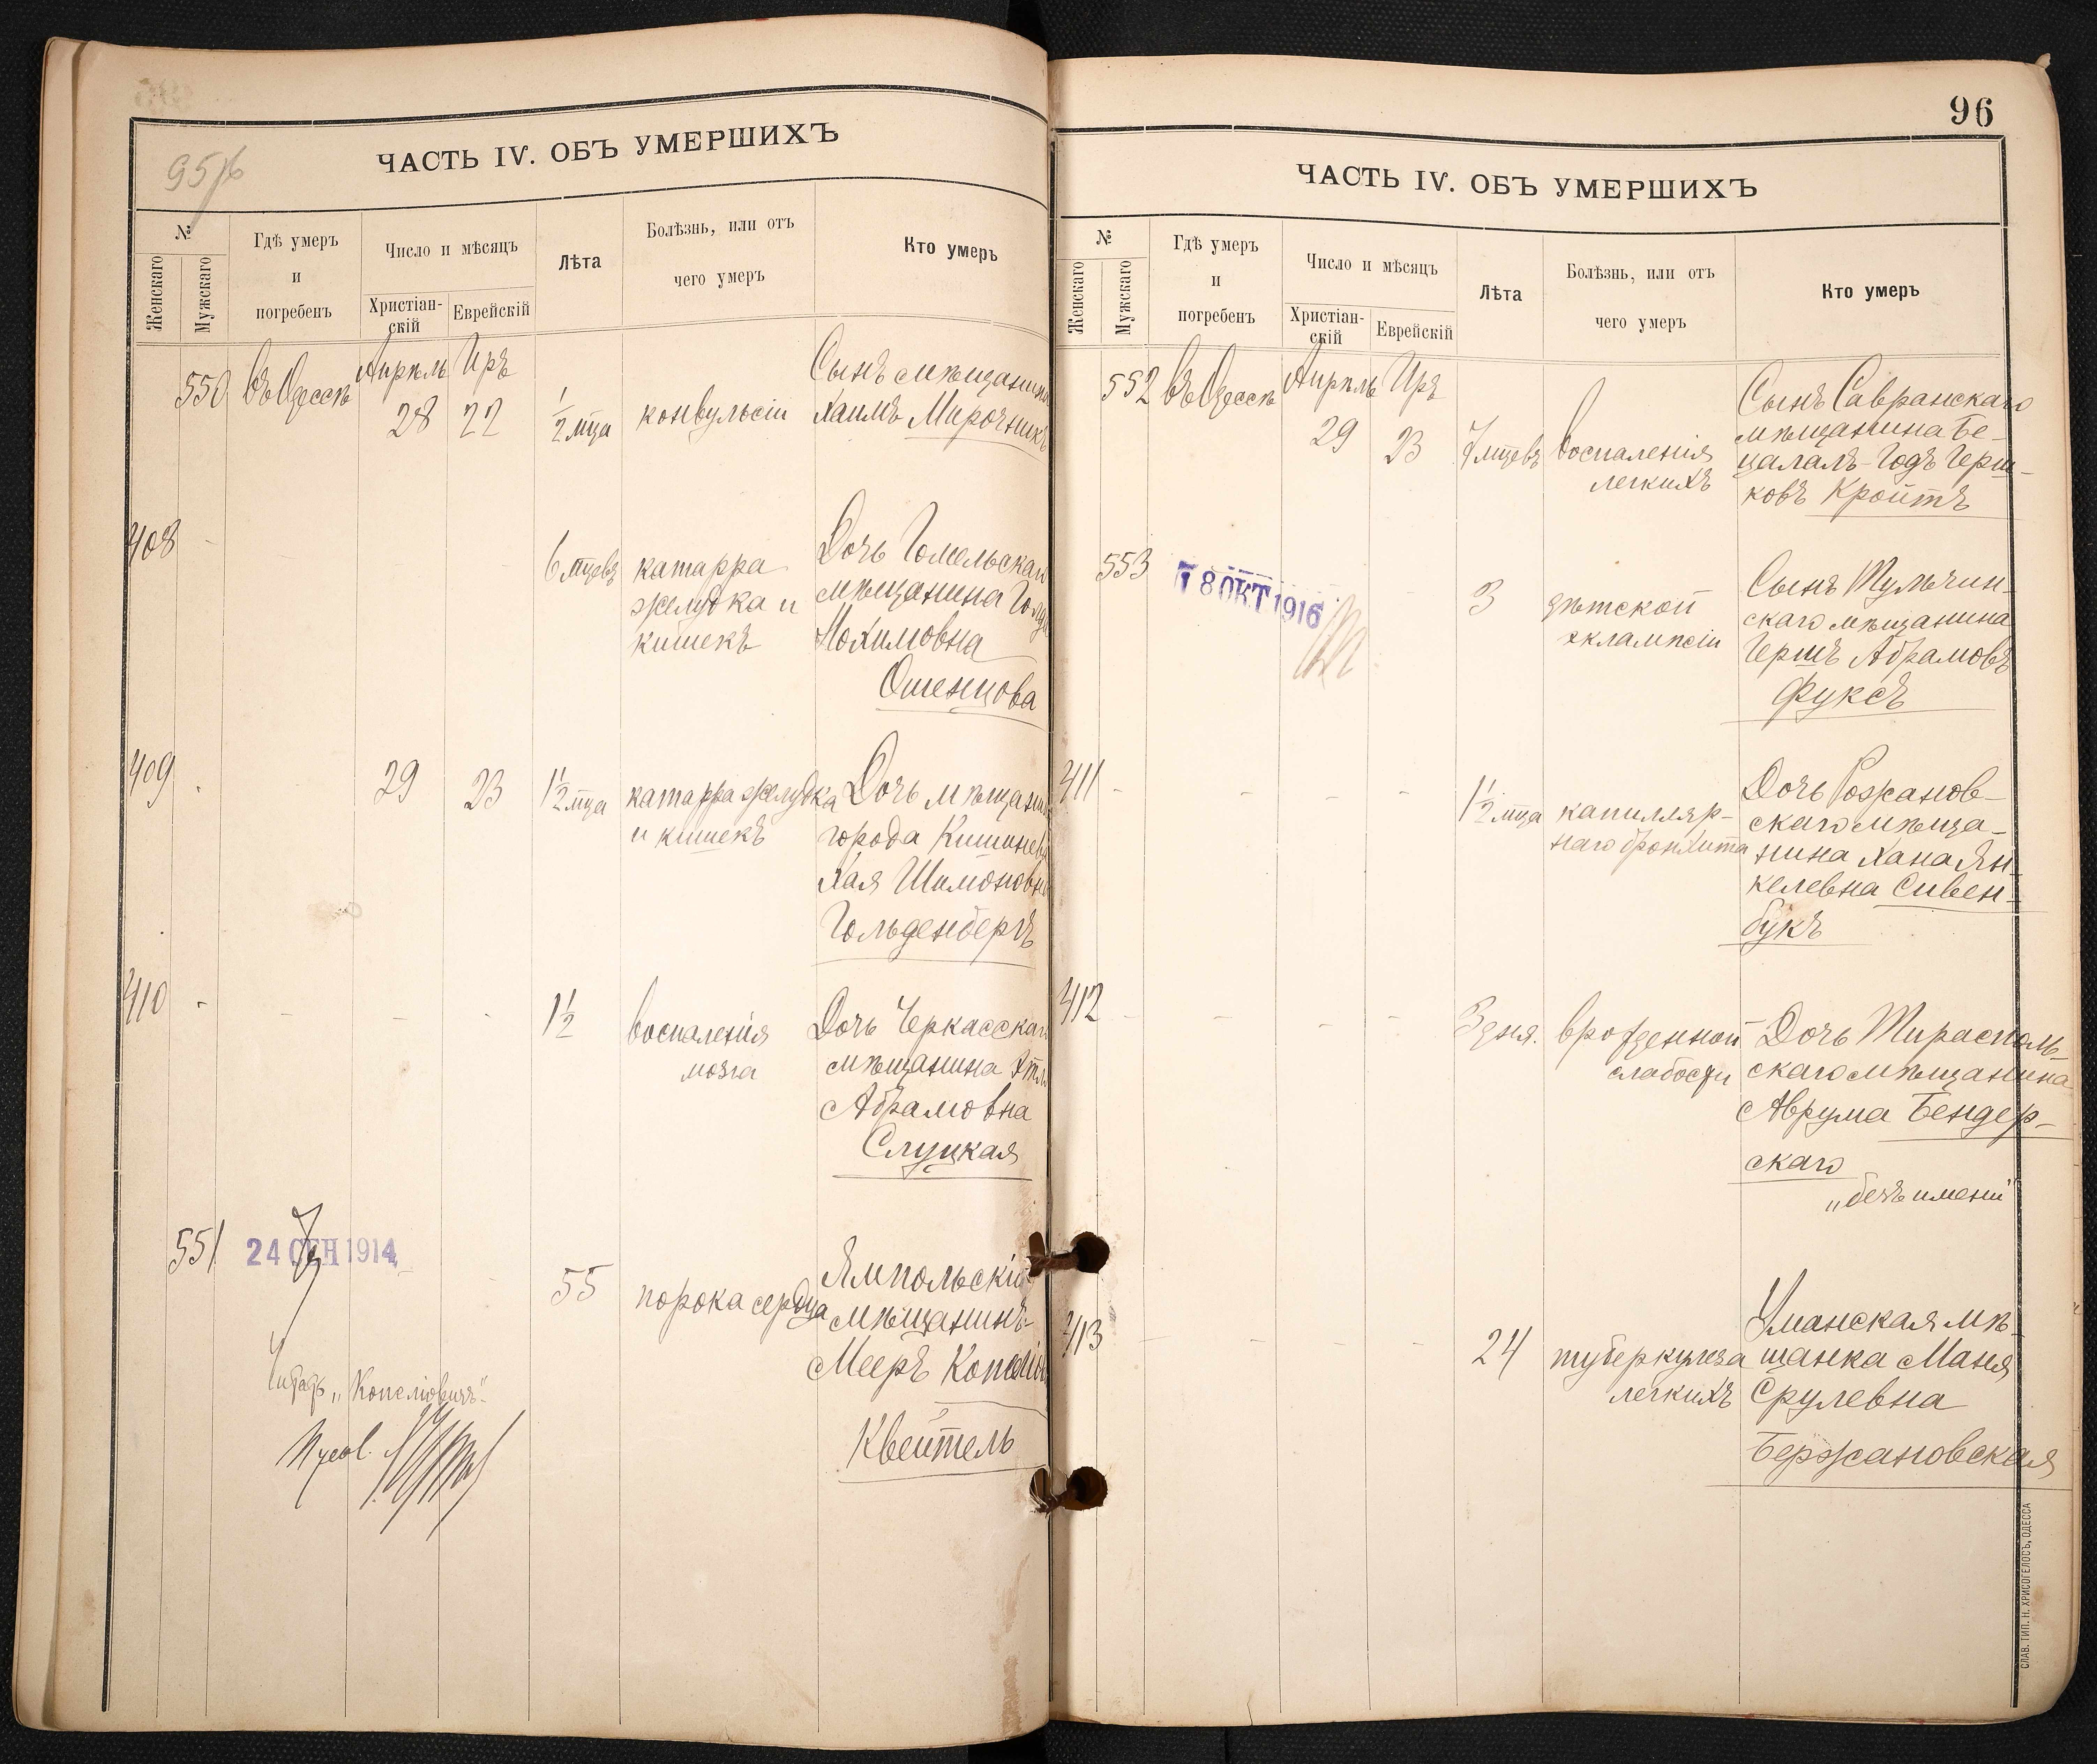 95/6
ЧАСТЬ IV. ОБЪ УМЕРШИХЪ
№
Женскаго
Мужскаго
Гдѣ умеръ
и
погребенъ
Число и мѣсяцъ
Христіан-
скій
Еврейскій
Лѣта
Болѣзнь, или отъ
чего умеръ
Кто умеръ
550 въ Одессѣ Апрѣль Иръ
28 22 1/2 мца конвульсіи
Сынъ мѣщанина
Хаимъ Мирочникъ
408 - - - -
6 мцевъ катарра
желудка и
кишекъ
Дочь Гомельскаго
мѣщанина
Нохимовна
Ошенцова
409 - 29 23 1 1/2 мца катарра желудка
и кишекъ
Дочь мѣщанина
города Кишинева
Хая Шимоновна
Гольденбергъ
410 - - - - 1 1/2 воспаленія
мозга
Дочь Черкасскаго
мѣщанина
Абрамовна
Слуцкая
551 24 СЕН 1914
55 порока сердца
Ямпольскій
мѣщанинъ
Мееръ
Квейтель
„Копеліовичъ“
96
ЧАСТЬ IV. ОБЪ УМЕРШИХЪ
№
Женскаго
Мужскаго
Гдѣ умеръ
и
погребенъ
Число и мѣсяцъ
Христіан-
скій
Еврейскій
Лѣта
Болѣзнь, или отъ
чего умеръ
Кто умеръ
552 въ Одессѣ Апрѣль Иръ
29 23 7 мцевъ воспаленія
легкихъ
Сынъ Савранскаго
мѣщанина Бе-
цалалъ-Годъ Герш-
ковъ Кройтъ
553 18 ОКТ 1916
3 дѣтской
эклампсіи
Сынъ Тульчин-
скаго мѣщанина
Гершъ Абрамовъ
Фуксъ
411 - - - - 1 1/2 мца капилляр-
наго бронхита
Дочь Рожанов-
скаго мѣща-
нина Хана Ян-
келевна Сивен-
букъ
412 - - - - 3 дня. врожденной
слабости
Дочь Тирасполь-
скаго мѣщанина
Аврума Бендер-
скаго
„безъ имени“
413 - - - - 24 туберкулеза
легкихъ
Уманская мѣ-
щанка Маня
Срулевна
Бержановская
СЛАВ. ТИП. Н. ХРИСОГЕЛОСЪ, ОДЕССА